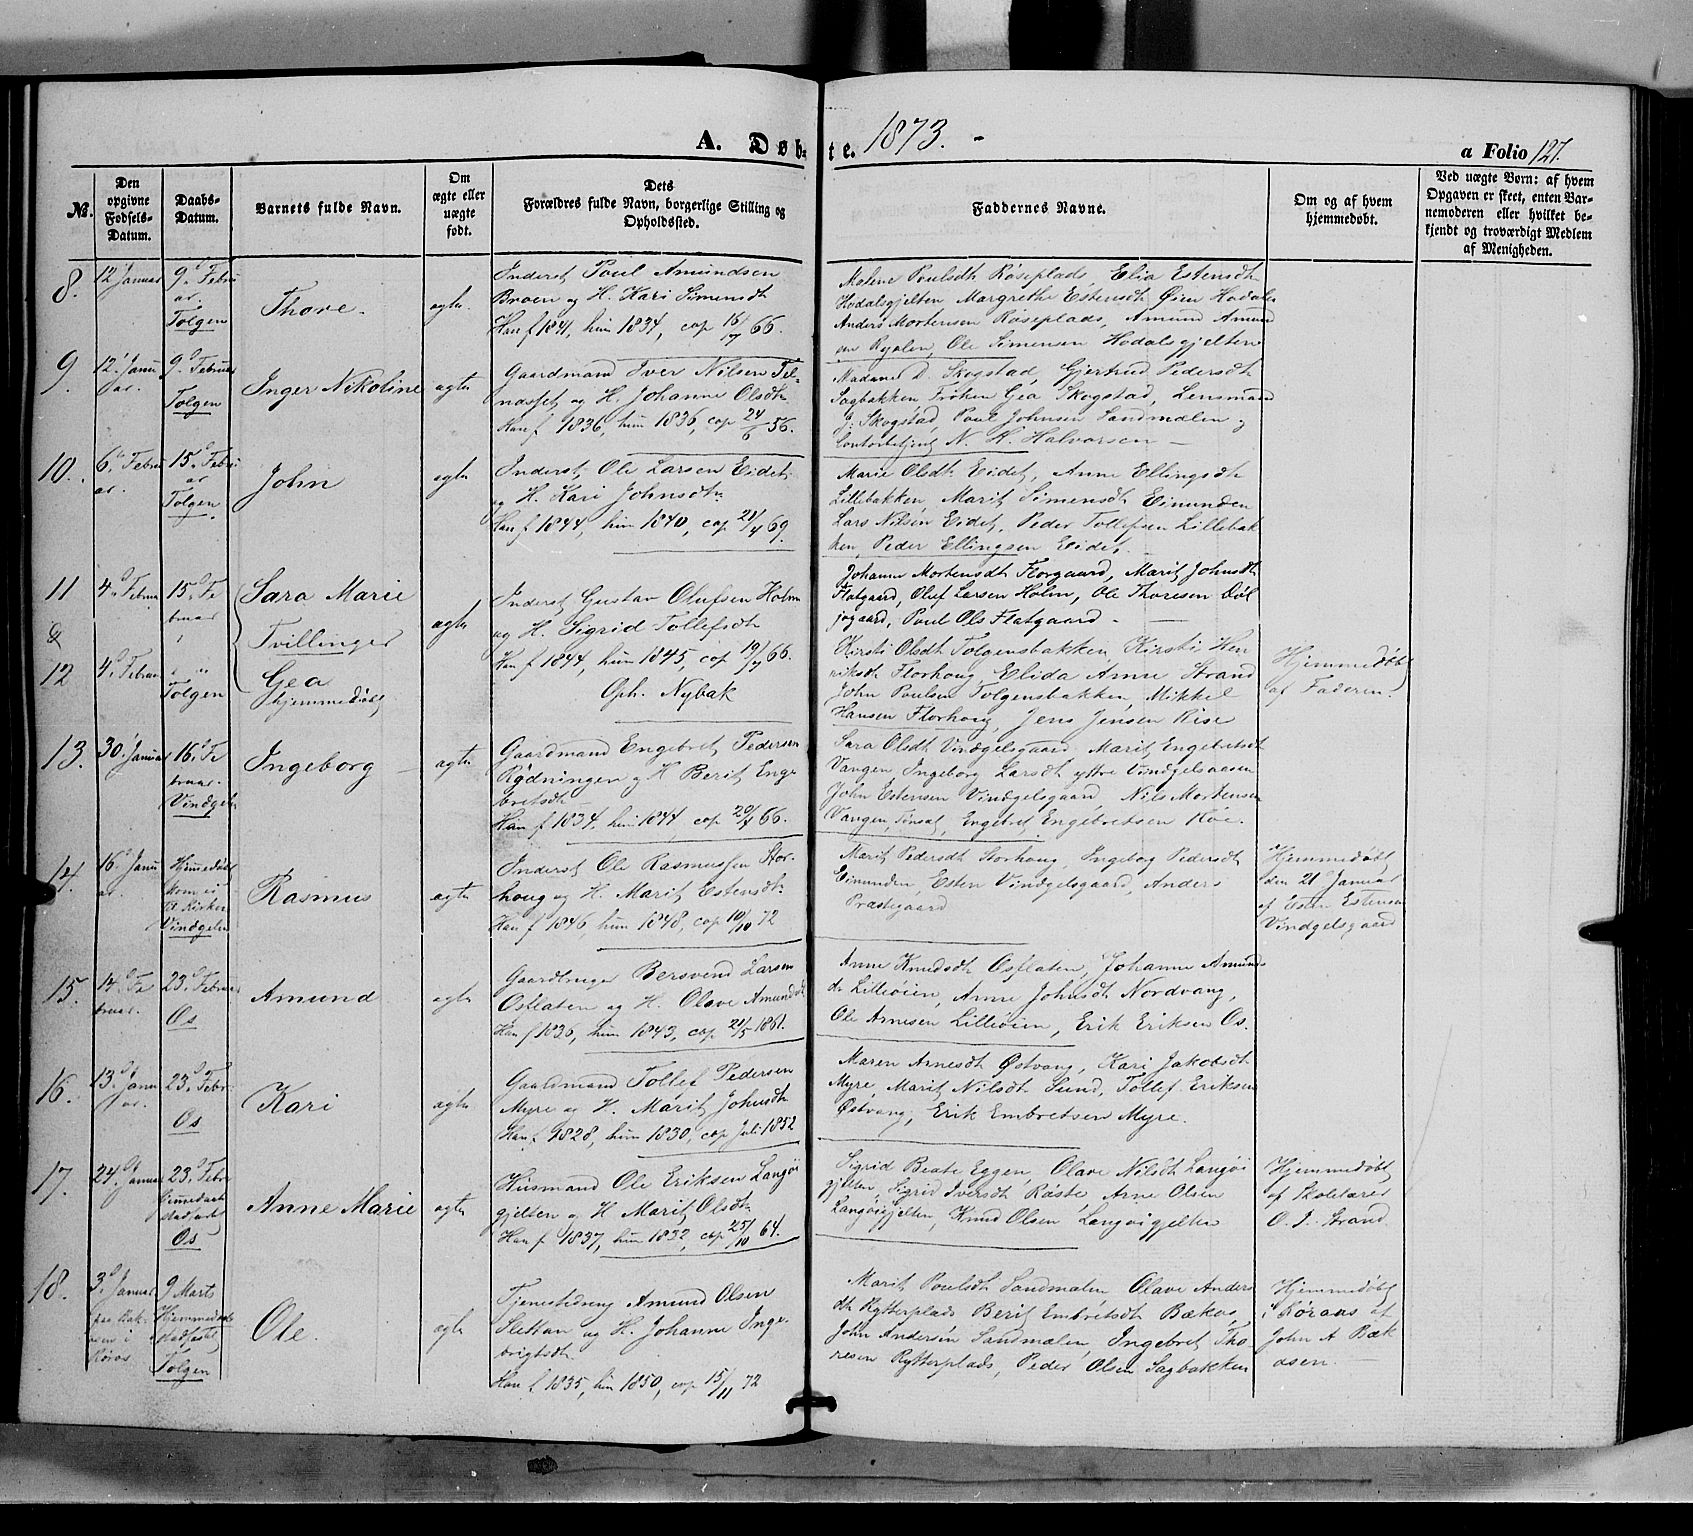 A. Døb-te. 1873. -
a Folio 127.
№.
Den opgivne Fødsels-Datum.
Daabs-Datum.
Barnets fulde Navn.
Om ægte eller uægte født.
Dets Forældres fulde Navn, borgerlige Stilling og Opholdssted.
Faddernes Navne.
Om og af hvem hjemmedøbt.
Ved uægte Børn: af hvem Opgaven er skeet, enten Barnemoderen eller hvilket bekjendt og troværdigt Medlem af Menigheden.
8.
12 Januar
9. Febru
ar.
Tolgen
Thore.
ægte.
Inderst Poul Amundsen
Broen og H. Kari Simensdt
Han f 1841, hun 1834, cop 66.
Malene Poulsdt Røseplads, Elia Estensdt
Hodalsgjelten Margrethe Estensdt Øien Hodalen
Anders Mortensen Røseplads, Amund Amund
sen Ryølen, Ole Simensen Hodalsgjelten
9.
12. Janu
ar.
9. Februar
Tolgen
Inger Nikoline
ægte
Gaardmand Iver Nilsen Tel-
næsset og H. Johanne Olsdtr
Han f 1836, hun 1836, cop 24/6 56.
Madame D. Skogstad, Gjertrud Pedersdt
Sagbakken Frøken Gea Skogstad, Lensmand
J. Skogstad, Poul Johnsen Sandmælen og
Contorbetjent N. H. Halvorsen
10.
6. Febru
ar.
15. Febru
ar
Tolgen.
John
ægte
Inderst Ole Larsen Eidet
og H. Kari Johnsdtr
Han f 1844, hun 1840, cop 21/4 69.
Marie Olsdt Eidet, Anne Ellingsdt
Lillebakken, Marit Simensdt Eimunden
Lars Nilsen Eidet, Peder Tollefsen Lillebak
ken, Peder Ellingsen Eidet.
11
4. Februar
15. Fe
bruar
Sara Marie
&
Tvillinger
12
4. Februar
" "
Tolgen
Gea
hjemmedøbt
ægte
Inderst Gustav Olufsen Holm
og H. Sigrid Tollefsdt
Han f 1844, hun 1845, cop 66.
Oph. Nybak
Johanne Mortensdt Florgaard, Marit Johnsdt
Flatgaard, Oluf Larsen Holm, Ole Thoresen Døl
jogaard, Poul Ols Flatgaard -
Kirsti Olsdt Tolgensbakken, Kirsti Hen
riksdt Florhoug, Elida Anne Strand
John Poulsen Tolgensbakken, Mikkel
Hansen Florhoug, Jens Jensen Rise
Hjemmedøbt
af Faderen.
13.
30. Januar
16. Fe
bruar.
Vindgeln
Ingeborg
ægte
Gaardmand Engebret Pedersen
Rydningen og H Berit Enge
bretsdt
Han f 1834, hun 1844, cop 66.
Sara Olsdt Vindgelsgaard, Marit Engebretsdt
Vangen Ingeborg Larsdt yttre Vindgelsaasen
John Estensen Vindgelsgaard, Nils Mortensen
Vangen, Tønset, Engebret Engebretsen Moe.
14.
16. Janu
ar.
Hjemmedøbt
kom ei
til Kirken
Vindgeln
Rasmus
ægte
Inderst Ole Rasmussen Stor-
houg og H. Marit Estensdt.
Han f 1846, hun 1848, cop 10/10 72
Marit Pedersdt Storhoug, Ingeborg Pedersdt
Eimunden, Esten Vindgelsgaard, Anders
Præstegaard
Hjemmedøbt
den 21 Januar
af Esten Estensen
Vindgelsgaard
15.
14. Fe
bruar.
23. Februar
Os
Amund
ægte
Gaardbruger Bersvend Larsen
Osflaten og H. Olave Amundsdt
Han f 1836, hun 1843, cop 21/5 1861.
Anne Knudsdt Osflaten, Johanne Amunds
dt Lilleøien, Anne Johnsdt Nordvang,
Ole Arnesen Lilleøien, Erik Eriksen Os.
16.
13. Janu
ar.
23. Febr.
Os
Kari
ægte
Gaardmand Tollef Pedersen
Myre og H. Marit Johnsdt
Han f 1828, hun 1830, cop Juli 1852
Maren Arnesdt Østvang, Kari Jakobsdt
Myre, Marit Nilsdt Sund, Tollef Eriksen
Østvang, Erik Embretsen Myre.
17.
24. Januar
23. Febr.
Hjemmedaab
stadfæstet
Os
Anne Marie
ægte
Husmand Ole Eriksen Langøi
gjelten og H Marit Olsdt
Han f 1837, hun 1832, cop 25/10 64.
Sigrid Beate Eggen, Olave Nilsdt Langøi
gjelten, Sigrid Iversdt Røste, Arne Olsen
Langøigjelten, Knud Olsen Langøigjelten
Hjemmedøbt
af Skolelærer
O. J. Strand
18.
3. Januar
paa Bak-
ken i
Røros
9 Marts
Hjemmedaab
stadfæstet
Tolgen
Ole.
ægte
Tjenestedreng Amund Olsen
Slettan og H. Johanne Inge
brigtsdt
Han f 1835, hun 1850, cop 15/11 72
Marit Poulsdt Sandmælen Olave Anders
dt Rytterplads Berit Embretsdt Bækos,
John Andersen Sandmælen, Ingebret Tho
resen Rytterplads, Peder Olsen Sagbakken
Hjemmedøbt
i Røraas af
John A Bæk
åsen.